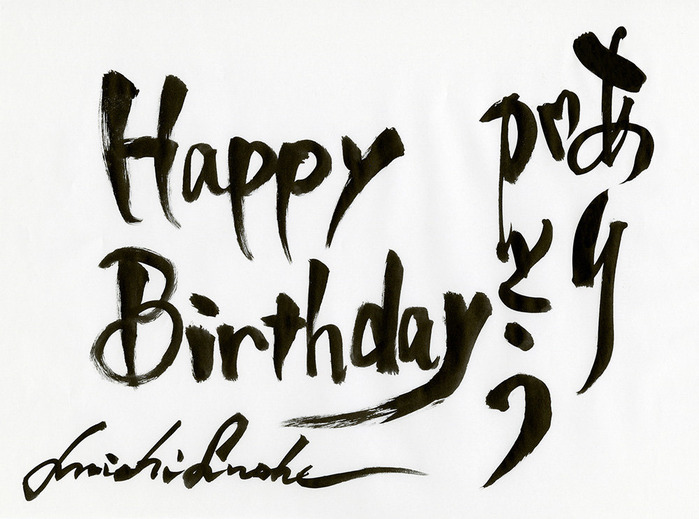 Happy
Birthday
あり
がとう